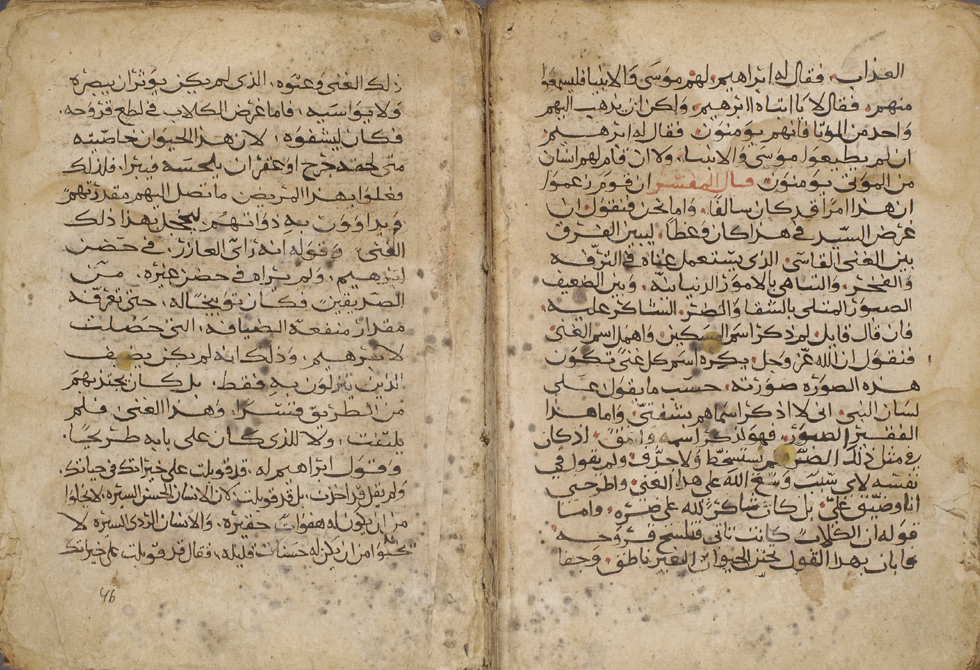 العذاب. فقال له ابراهيم. لهم موسى والانبيا فليسمعوا
منهم. فقال لا يا ابتاه ابرهيم. ولكن ان يذهب اليهم
واحد من الموتا فانهم يومنون. فقال له ابرهيم
ان لم يطيعوا موسى والانبيا. ولا ان قام لهم انسان
من الموتى يومنون. قال المفسر ان قوم زعموا
ان هذا امرا قد كان سالفا. واما نحن فنقول ان
غرض السيد في هذا كان وعظا. ليبين الفرق
بين الغني القاسي. الذي يستعمل غناه في الترفه
والفخر. والتباهي بالامور الدنيانيه. وبين الضعيف
الصبور المبتلى بالشقا والضر. الشاكر عليه
فان قال قايل. لم ذكر اسم المسكين. واهمل اسم الغني
فنقول ان الله عز وجل. يكره اسم كل غني تكون
هذه الصوره صورته. حسب ما يقول على
لسان النبي. اني لا اذكر اسماهم بشفتي. واما هذا
الفقير الصبور. فهو لذكر اسمه وامق. اذ كان
في مثل ذلك الضر لم يستسخط ولا جدف. ولم يقول في
نفسه لاي سبب وسع الله على هذا الغني. واطرحني
انا وضيق علي. بل كان شاكرا لله على ضره. واما
قوله ان الكلاب كانت تاتي فتلحس قروحه
فابان بهذا القول تحنن الحيوان الغير ناطق. وجفا
ذلك الغني وعتوه. الذي لم يكن يوثر ان يبصره
ولا يواسيه. فاما غرض الكلاب في لطع قروحه
فكان ليشفوه. لان هذا الحيوان خاصيته
متى لحقه جرح او عقر ان يلحسه فيبرا. فلذلك
فعلوا بهذا المريض ما تصل اليهم مقدرتهم
ويداوون به ذواتهم ليخجل بهذا ذلك
الغني. وقوله انه راى العازر. في حضن
ابرهيم. ولم يراه في حضن غيره. من
الصديقين. فكان توبيخا له. حتى تعرفه
مقدار منفعة الضيافه. التي حصلت
لابرهيم. وذلك انه لم يكن يضيف
الذين ينزلون به فقط. بل كان يجتذبهم
من الطريق قسرا. وهذا الغني فلم
يلتفت. ولا للذي كان على بابه طريحا.
وقول ابراهيم له. قد قوبلت على خيراتك في حياتك
ولم يقل قد اخذت. بل قد قوبلت. لان الانسان الحسن السيره. لا يخلوا
من ان يكون له هفوات حقيره. والانسان الردي السيره لا
يخلوا من ان يكن له حسنات قليله. فقال قد قوبلت على خيراتك
46